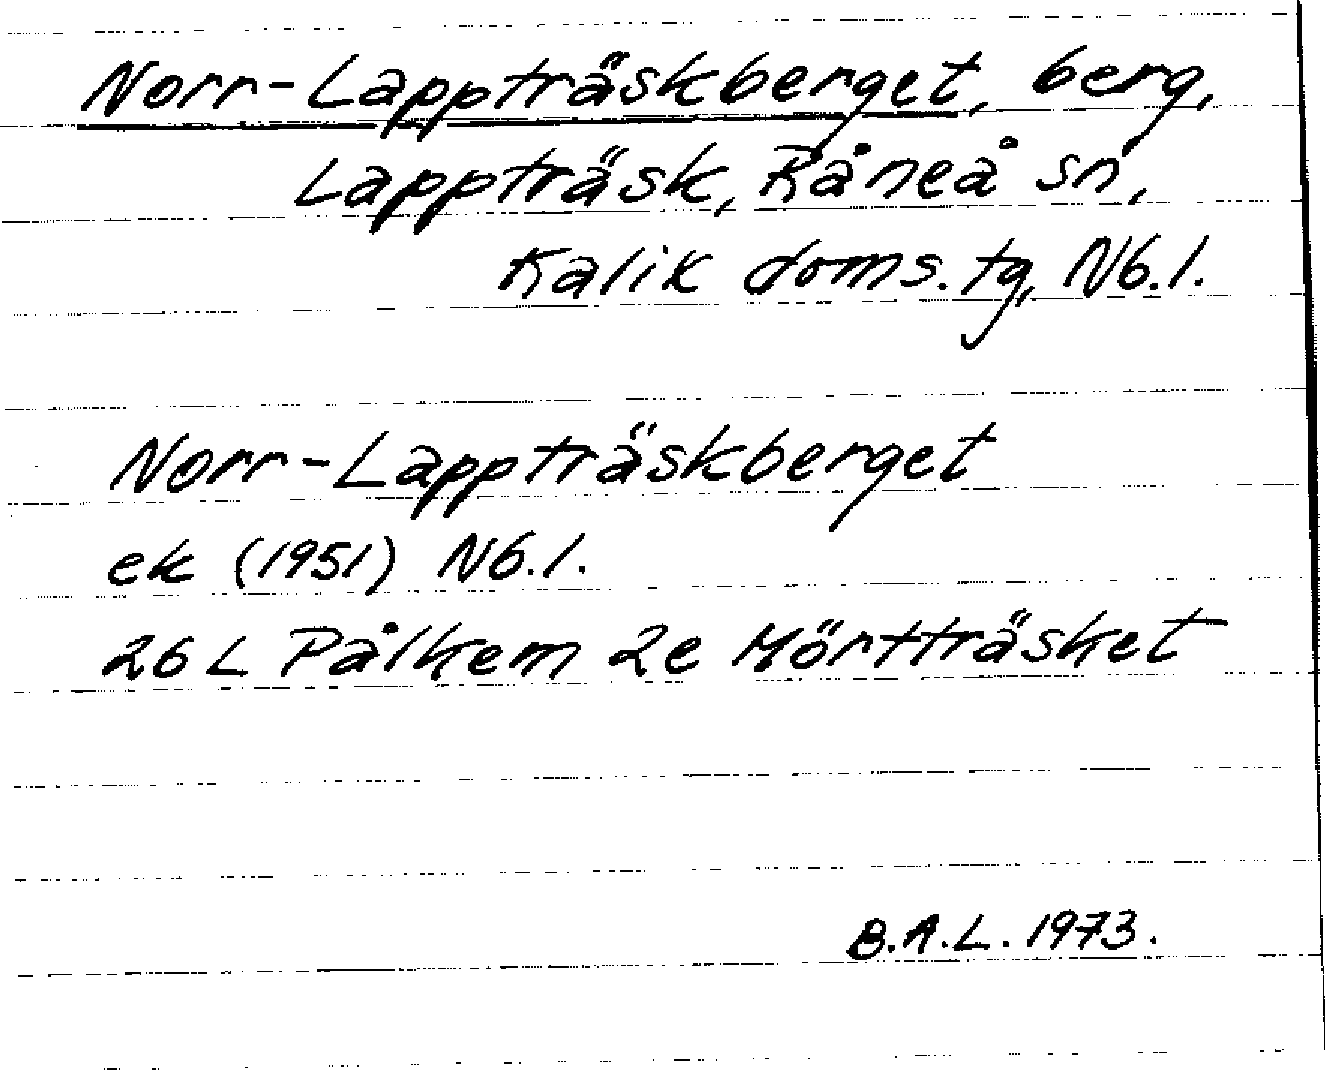 Norr-Lappträskberget, berg,
Lappträsk, Råneå sn,
Kalik doms.tg, Nb.l.
Norr-Lappträskberget
ek (1951) Nb.l.
26 L Pålkem 2e Mörtträsket
B.A.L. 1973.